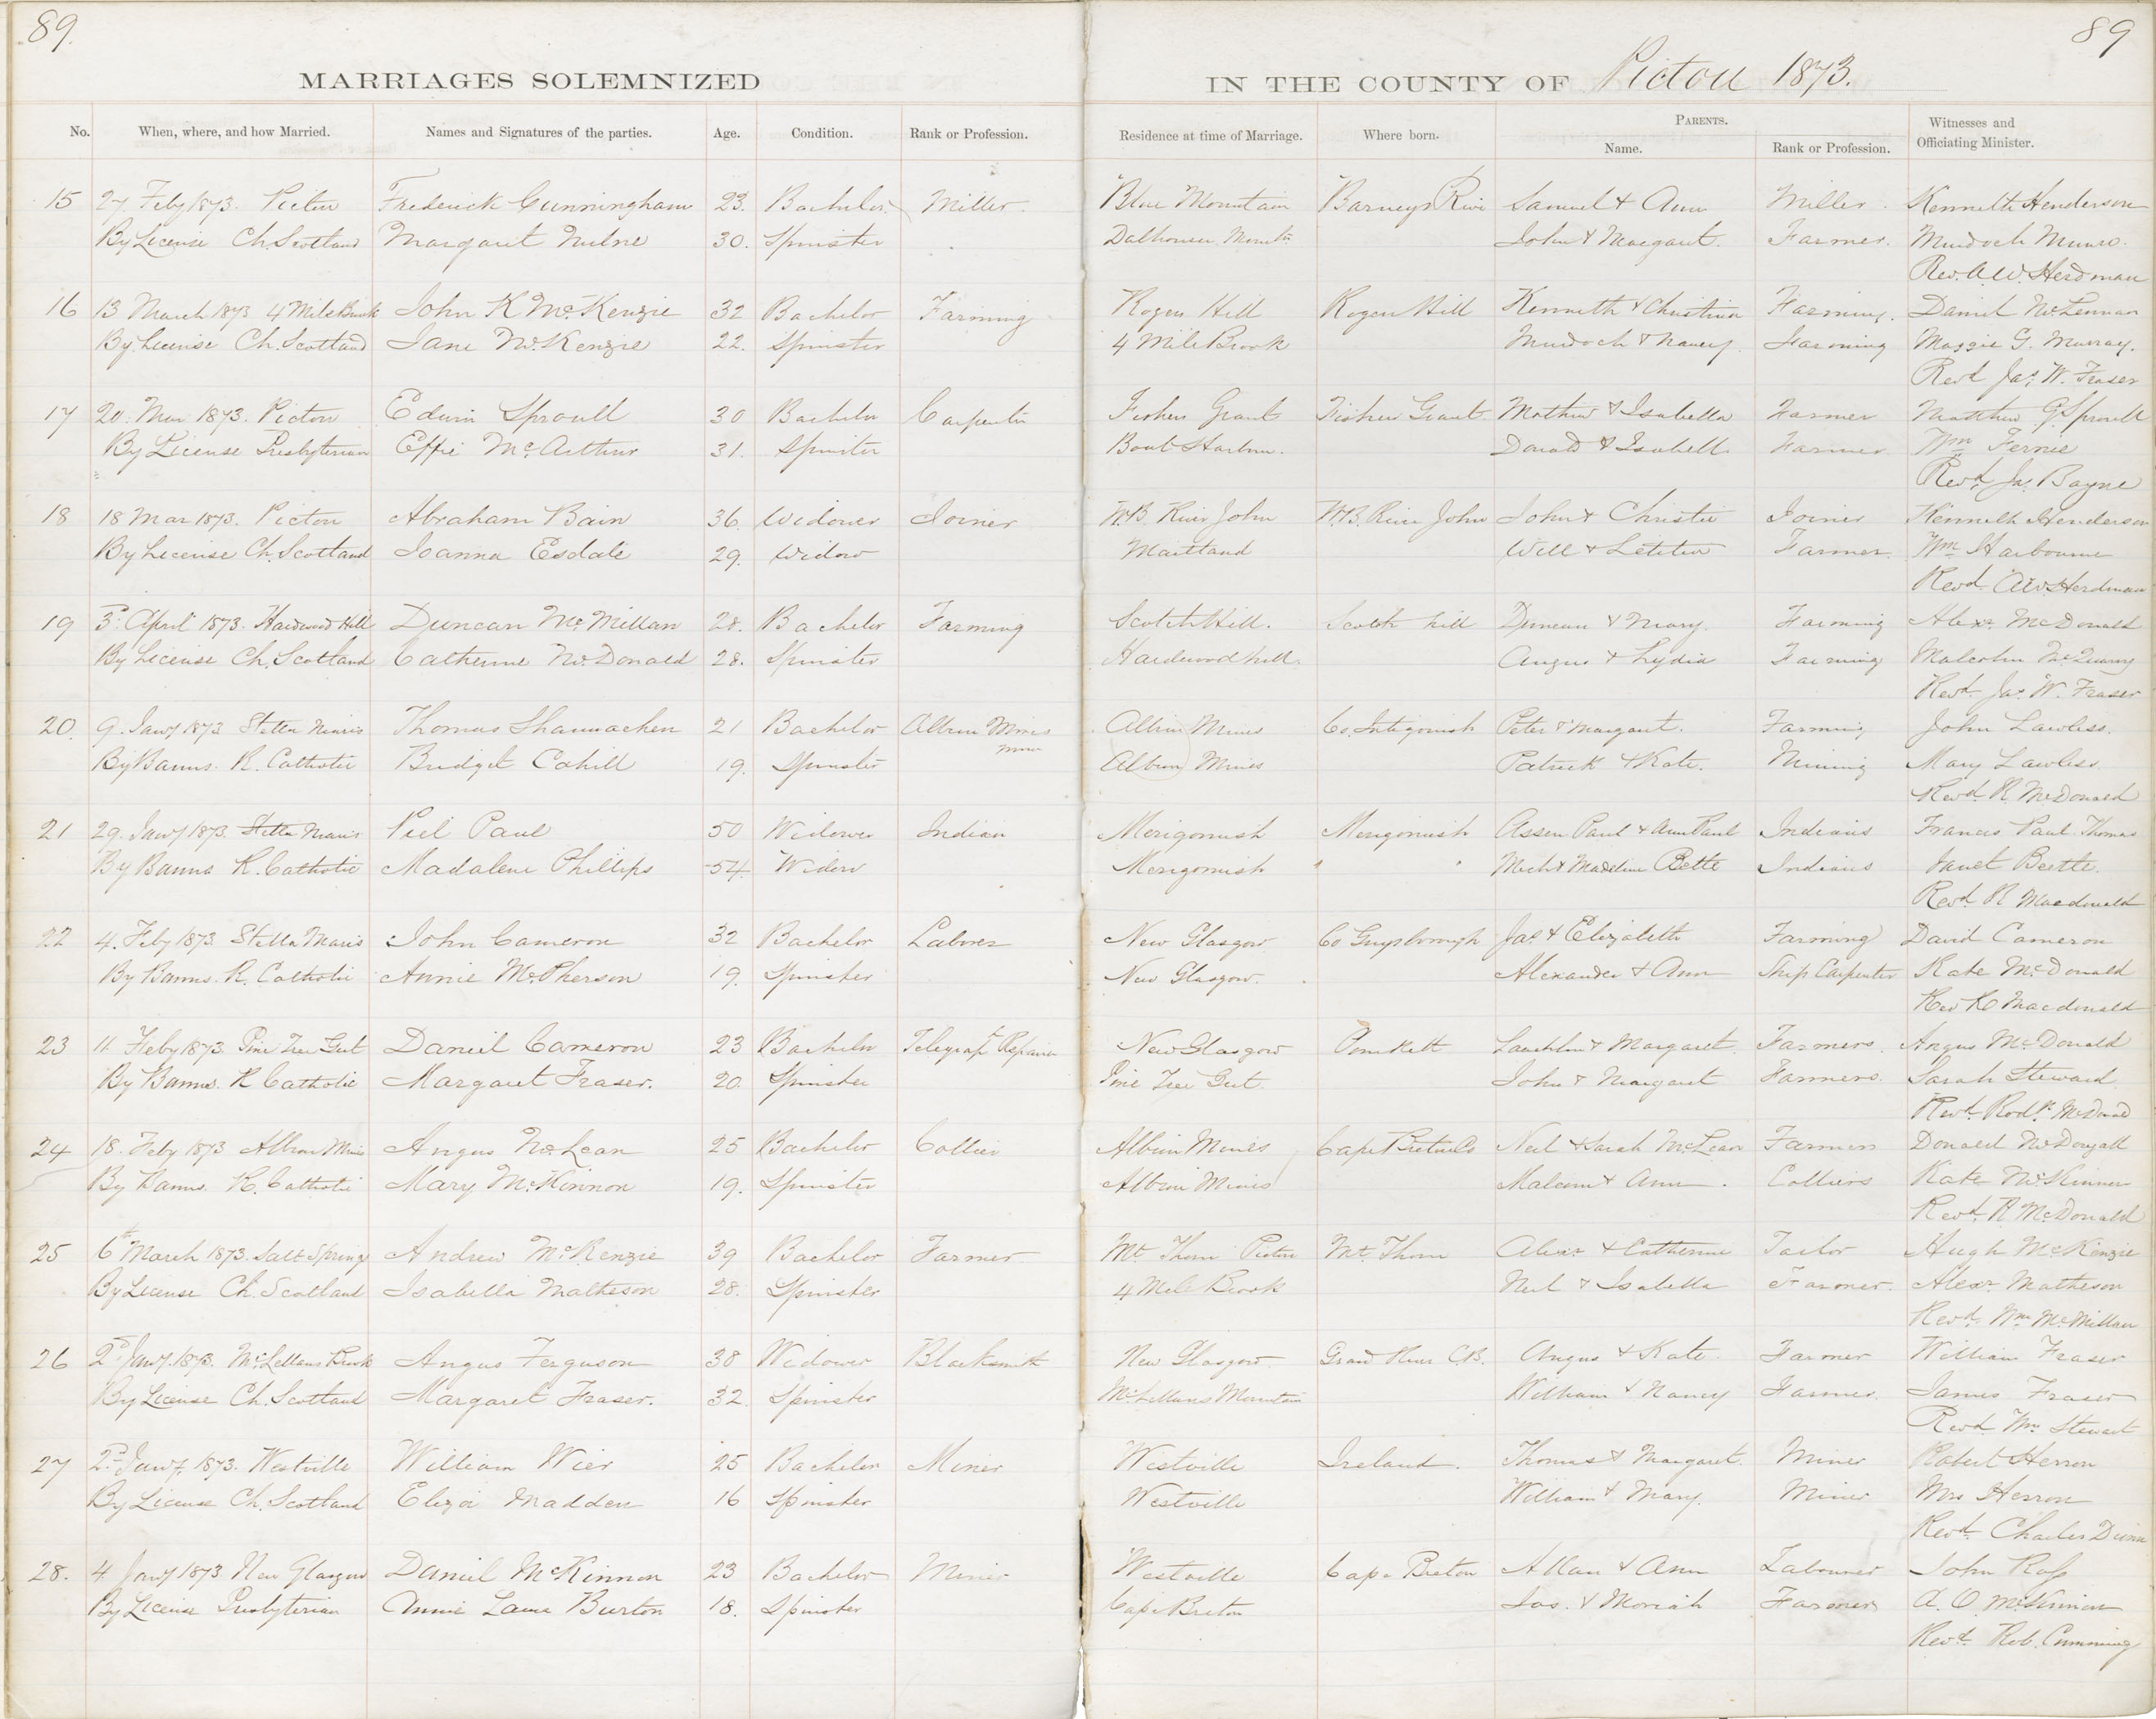 89. 89
MARRIAGES SOLEMNIZED IN THE COUNTY OF Pictou 1873.
No. When, where, and how Married. Names and Signatures of the parties. Age. Condition. Rank or Profession. Residence at time of Marriage. Where born. PARENTS. Name. Rank or Profession. Witnesses and Officiating Minister.
15 27 Feby 1873. Pictou Frederick Cunningham 23. Bachelor. Miller. Blue Mountain Barneys River Samuel & Ann Miller. Kenneth Henderson
By License Ch. Scotland Margaret Milne 30. Spinster Dalhousie Mountn John & Margaret. Farmer. Murdoch Munro.
Rev. A. W. Herdman
16 13 March 1873 4 Mile Brook John K McKenzie 32 Bachelor Farming Rogers Hill Rogers Hill Kenneth & Christina Farming. Daniel McLennan
By License Ch. Scotland Jane McKenzie 22. Spinster 4 Mile Brook Murdoch & Nancy. Farming Maggie G. Murray.
Revd Jas. W. Fraser
17 20. Mar 1873. Pictou Edwin Sproull 30 Bachelor Carpenter Fishers Grant Fishers Grant Mathew & Isabella Farmer Matthew G Sproull
By License Presbyterian Effie McArthur 31. Spinster Boat Harbour. Donald & Isabella Farmer Wm Fernie
Revd Jas. Bayne
18 18 Mar 1873. Pictou Abraham Bain 36. Widower Joiner W.B. River John W.B. River John John & Christie Joiner Kenneth Henderson
By License Ch. Scotland Joanna Esdale 29. Widow Maitland Will & Letitia Farmer. Wm Harbourne
Revd A W Herdman
19 3d April 1873. Hardwood Hill Duncan McMillan 28. Bachelor Farming Scotch Hill. Scotch hill Duncan & Mary. Farming Alexr McDonald
By License Ch. Scotland Catherine McDonald 28. Spinster Hardwood hill. Angus & Lydia Farming Malcolm McQuarry
Revd Jas. W. Fraser
20. 9. Jany 1873 Stella Maris Thomas Shannachen 21 Bachelor Albion Mines Albion Mines Co. Antigonish Peter & Margaret. Farming John Lawless.
miner
By Banns. R. Catholic Bridget Cahill 19. Spinster Albion Mines Patrick & Kate. Mining Mary Lawless.
Revd R. McDonald
21 29. Jany 1873. Stella Maris Piel Paul 50 Widower Indian Merigomish Merigomish Assen Paul & Ann Paul Indians Francis Paul Thomas
By Banns R. Catholic Madalene Phillips 54. Widow Merigomish " " Mich & Madeline Bette Indians Janet Beetle.
Revd R Macdonald
22 4. Feby 1873 Stella Maris John Cameron 32 Bachelor Laborer New Glasgow Co Guysborough Jas. & Elizabeth Farming David Cameron
By Banns. R. Catholic Annie McPherson 19. Spinster New Glasgow. Alexander & Ann Ship Carpenter Kate McDonald
Rev R Macdonald
23 11 Feby 1873 Pine Tree Gut Daniel Cameron 23 Bachelor Telegraph Repairer New Glasgow Pomkett Lauchlin & Margaret Farmers. Angus McDonald
By Banns. R Catholic Margaret Fraser. 20. Spinster Pine Tree Gut. John & Margaret Farmers. Sarah Steward
Revd Rodk McDonald
24 18. Feby 1873 Albion Mines Angus McLean 25 Bachelor Collier Albion Mines Cape Breton Co Neil & Sarah McLean Farmers Donald McDougall
By Banns. R. Catholic Mary McKinnon 19. Spinster Albion Mines Malcom & Ann. Colliers Kate McKinnon
Revd. R McDonald
25 6th March 1873. Salt Springs Andrew McKenzie 39 Bachelor Farmer Mt. Thom Pictou Mt. Thom Alexr & Catherine Tailor Hugh McKenzie
By License Ch. Scotland Isabella Matheson 28. Spinster 4 Mile Brook Neil & Isabella Farmer. Alexr Matheson
Revd. Wm McMillan
26 2d Jany. 1873. McLellans Brook Angus Ferguson 38 Widower Blacksmith New Glasgow. Grand River C.B. Angus & Kate. Farmer William Fraser
By License Ch. Scotland Margaret Fraser. 32. Spinster McLellans Mountain William & Nancy Farmer. James Fraser
Revd Wm Stewart
27 2d Jany. 1873. Westville William Wier 25 Bachelor Miner Westville Ireland. Thomas & Margaret. Miner Robert Herron
By License Ch. Scotland Eliza Madden 16 Spinster Westville William & Mary. Miner Mrs Herron
Revd. Charles Dunn
28. 4 Jany 1873 New Glasgow Daniel McKinnon 23 Bachelor Miner Westville Cape Breton Allan & Ann Labourer John Ross
By License Presbyterian Annie Laura Burton 18. Spinster Cape Breton Jas. & Moriah Farmer A. O. McKinnon
Revd. Rob. Cumming